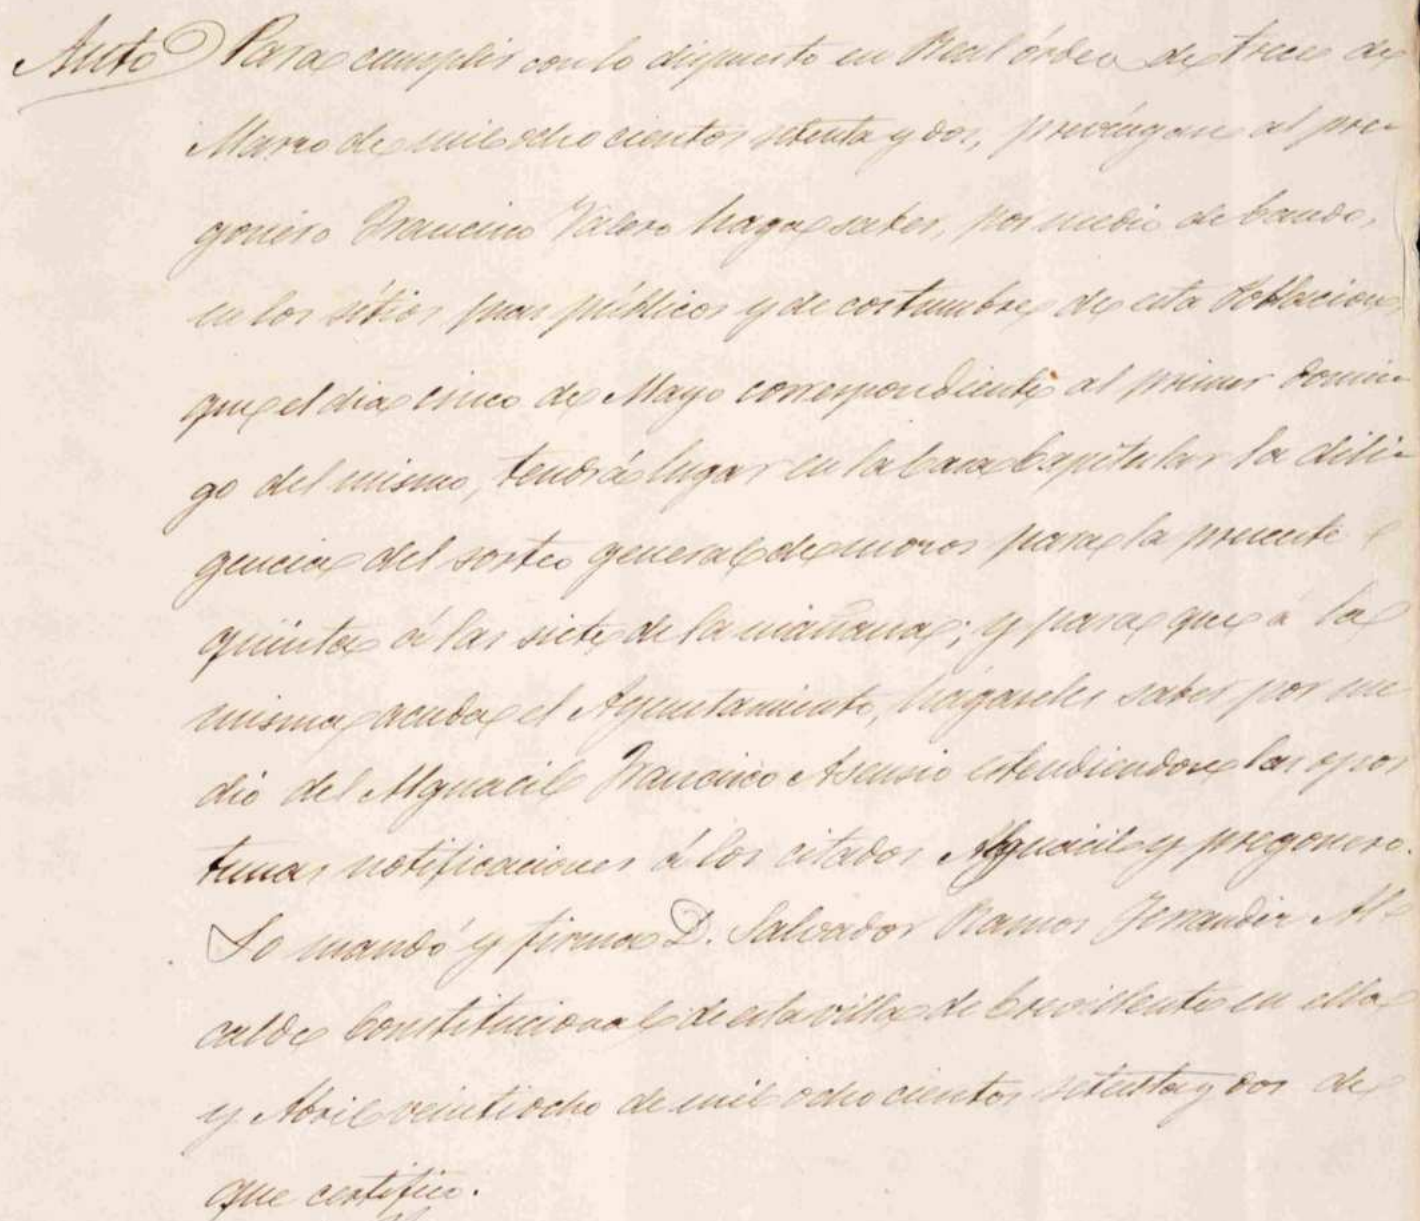 Auto Para cumplir con lo dispuesto en Real órden de trece de
Marzo de mil ochocientos setenta y dos, prevéngase al pre-
gonero Francisco Valero haga saber, por medio de bando,
en los sítios mas públicos y de costumbre de esta Poblacion
que el dia cinco de Mayo correspondiente al primer Domin-
go del mismo, tendrá lugar en la Casa Capitular la dili-
gencia del sorteo general de mozos para la presente
quinta á las siete de la mañana; y para que á la
misma acuda el Ayuntamiento, hágaseles saber por me
dio del Alguacil Francisco Asensio estendiendose las opor
tunas notificaciones á los citados Alguacil y pregonero.
Lo mandó y firma D. Salvador Ramos Ferrandez Al-
calde Constitucional de esta villa de Crevillente en ella
y Abril veintiocho de mil ochocientos setenta y dos de
que certifico.